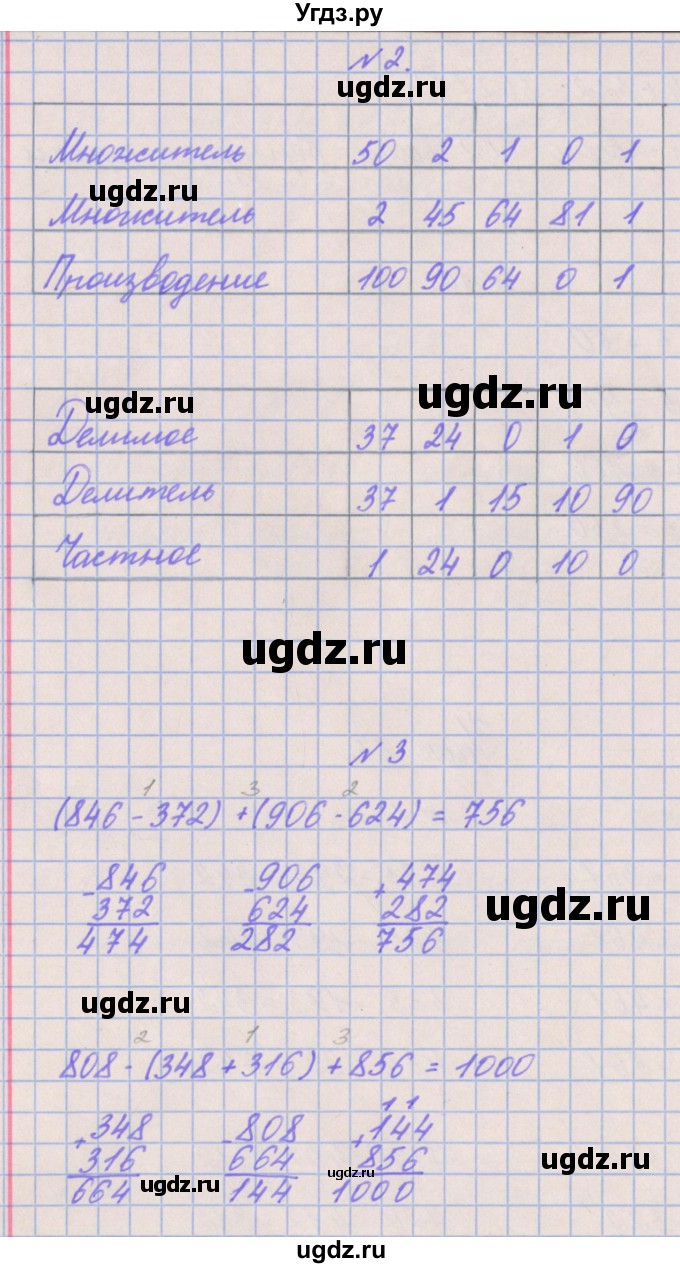 Угдз.ру
N 2.
ugdz.ru
Множитель 50 2 1 0 1
ugdz.ru
Множитель 2 45 64 81 1
Произведение 100 90 64 0 1
ugdz.ru
ugdz.ru
Делимое 37 24 0 1 0
Делитель 37 1 15 10 90
Частное 1 24 0 10 0
ugdz.ru
N 3
1 3 2
(846 - 372) + (906 - 624) = 756
- 846 - 906 + 474
372 624 282
474 282 756
ugdz.ru
ugdz.ru
2 1 3
808 - (348 + 316) + 856 = 1000
1 1
+ 348 - 808 + 144
316 664 856
664 144 1000
ugdz.ru
ugdz.ru
ugdz.ru
ugdz.ru